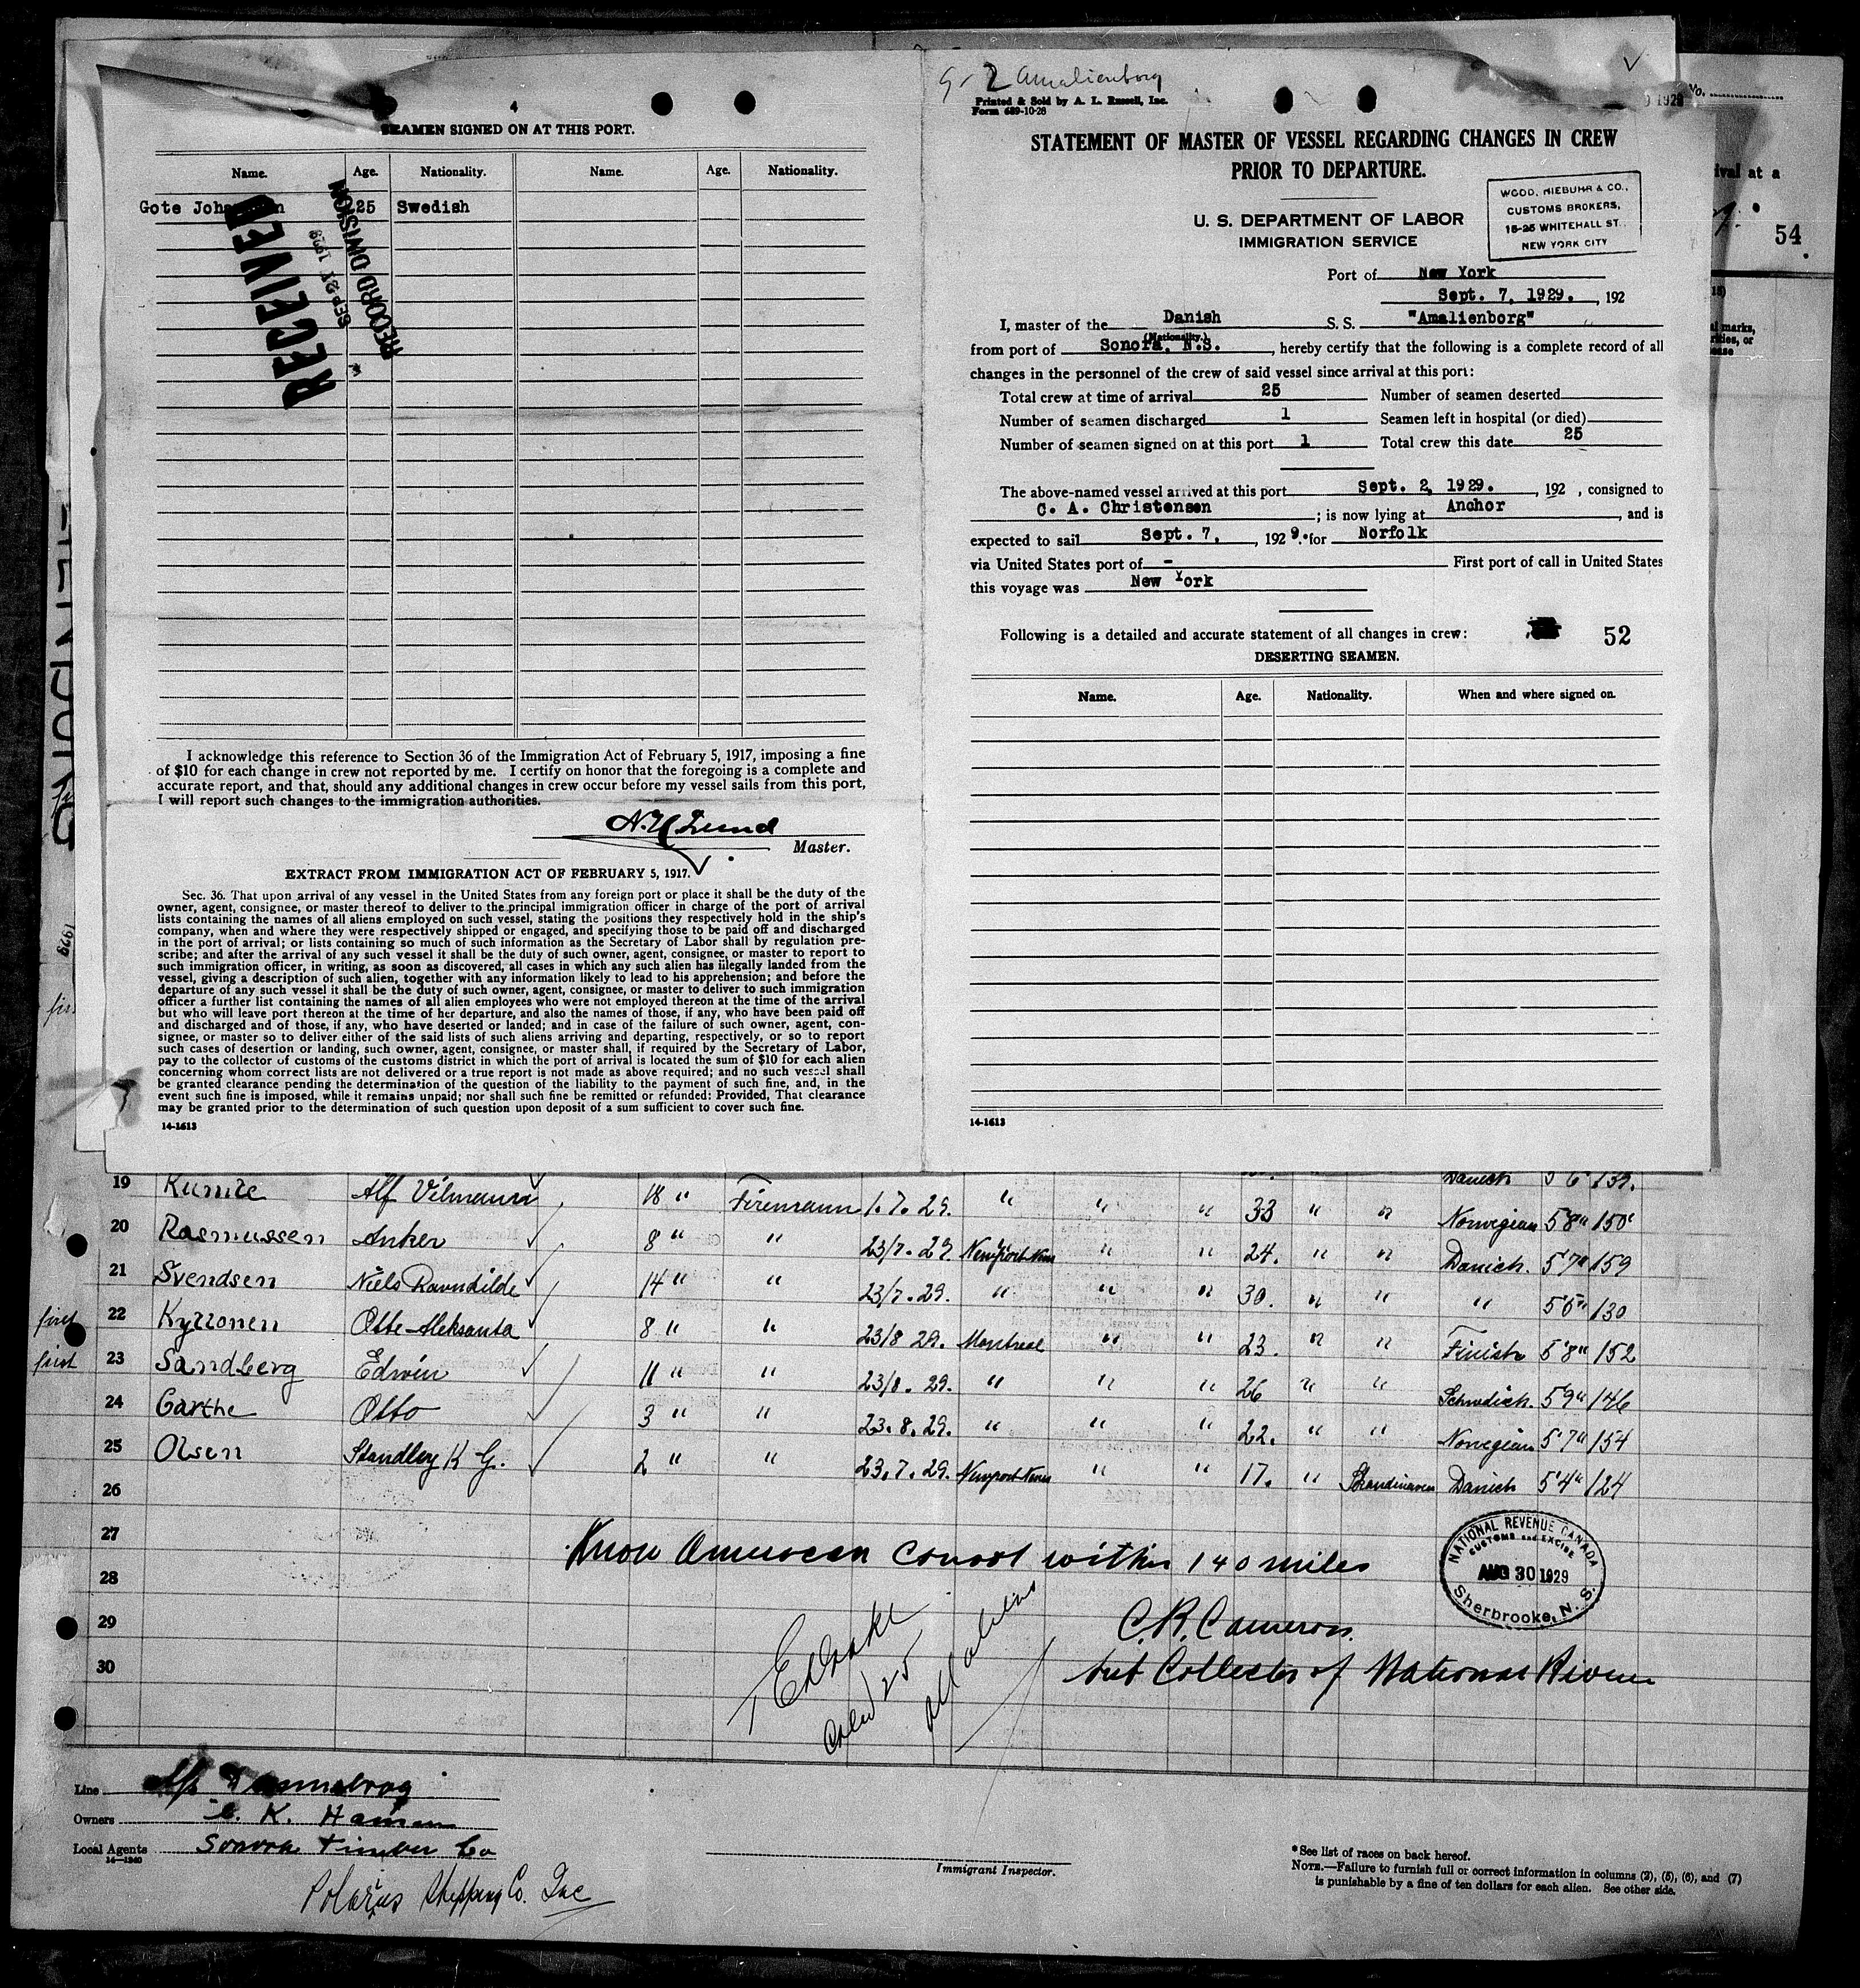 4
SEAMEN SIGNED ON AT THIS PORT.
Name. Age. Nationality. Name. Age. Nationality.
Gote 25 Swedish
RECEIVED
SEP 21 1929
RECORD DIVISION
I acknowledge this reference to Section 36 of the Immigration Act of February 5, 1917, imposing a fine
of $10 for each change in crew not reported by me. I certify on honor that the foregoing is a complete and
accurate report, and that, should any additional changes in crew occur before my vessel sails from this port,
I will report such changes to the immigration authorities.
Lund
Master.
EXTRACT FROM IMMIGRATION ACT OF FEBRUARY 5, 1917.
Sec. 36. That upon arrival of any vessel in the United States from any foreign port or place it shall be the duty of the
owner, agent, consignee, or master thereof to deliver to the principal immigration officer in charge of the port of arrival
lists containing the names of all aliens employed on such vessel, stating the positions they respectively hold in the ship's
company, when and where they were respectively shipped or engaged, and specifying those to be paid off and discharged
in the port of arrival; or lists containing so much of such information as the Secretary of Labor shall by regulation pre-
scribe; and after the arrival of any such vessel it shall be the duty of such owner, agent, consignee, or master to report to
such immigration officer, in writing, as soon as discovered, all cases in which any such alien has illegally landed from the
vessel, giving a description of such alien, together with any information likely to lead to his apprehension; and before the
departure of any such vessel it shall be the duty of such owner, agent, consignee, or master to deliver to such immigration
officer a further list containing the names of all alien employees who were not employed thereon at the time of the arrival
but who will leave port thereon at the time of her departure, and also the names of those, if any, who have been paid off
and discharged and of those, if any, who have deserted or landed; and in case of the failure of such owner, agent, con-
signee, or master so to deliver either of the said lists of such aliens arriving and departing, respectively, or so to report
such cases of desertion or landing, such owner, agent, consignee, or master shall, if required by the Secretary of Labor,
pay to the collector of customs of the customs district in which the port of arrival is located the sum of $10 for each alien
concerning whom correct lists are not delivered or a true report is not made as above required; and no such vessel shall
be granted clearance pending the determination of the question of the liability to the payment of such fine, and, in the
event such fine is imposed, while it remains unpaid; nor shall such fine be remitted or refunded: Provided, That clearance
may be granted prior to the determination of such question upon deposit of a sum sufficient to cover such fine.
14-1613
Amalienborg
Printed & Sold by A. L. Russell, Inc.
Form 689-10-28
STATEMENT OF MASTER OF VESSEL REGARDING CHANGES IN CREW
PRIOR TO DEPARTURE.
U. S. DEPARTMENT OF LABOR
IMMIGRATION SERVICE
WOOD, NIEBUHR & CO.,
CUSTOMS BROKERS,
15-25 WHITEHALL ST.
NEW YORK CITY
Port of New York
Sept. 7, 1929. , 192
I, master of the Danish S. S. "Amalienborg"
(Nationality.)
from port of Sonora, N.S. , hereby certify that the following is a complete record of all
changes in the personnel of the crew of said vessel since arrival at this port:
Total crew at time of arrival 25 Number of seamen deserted
Number of seamen discharged 1 Seamen left in hospital (or died)
Number of seamen signed on at this port 1 Total crew this date 25
The above-named vessel arrived at this port Sept. 2, 1929. , 192 , consigned to
C. A. Christensen ; is now lying at Anchor , and is
expected to sail Sept. 7, , 1929. for Norfolk
via United States port of - First port of call in United States
this voyage was New York
Following is a detailed and accurate statement of all changes in crew: 52
DESERTING SEAMEN.
Name. Age. Nationality. When and where signed on.
14-1613
54
19 Kunze Alf 18 " Firemann 1.7.29. " " " 33 " " Norwegian 5'8" 150
20 Rasmussen Anker 8 " " 23/7.29. Newport News " " 24. " " Danich. 5'7" 159
21 Svendsen Niels Ravndilde 14 " " 23/7.29. " " " 30. " " " 5'6" 130
first 22 Otto Aleksanta 8 " " 23/8 29. Montreal " " 23. " " Finish 5'8" 152
first 23 Sandberg Edwin 11 " " 23/8.29. " " " 26 " " 5'9" 146
24 Garthe Otto 3 " " 23.8.29. " " " 22. " " Norwegian 5'7" 154
25 Olsen Standley K G. 2 " " 23.7.29. Newport News " " 17. " Danich 5'4" 124
26
27
28
29
30
American Consul within 140 miles
NATIONAL REVENUE CANADA
CUSTOMS AND EXCISE
AUG 30 1929
Sherbrooke, N. S.
C. R. Cameron.
Sub Collector of National Revenue
Line A/S Dannebrog
Owners C. K. Hansen
Local Agents Sonora Timber Co
14-1240
Polarus Shipping Co. Inc
Immigrant Inspector.
*See list of races on back hereof.
NOTE.—Failure to furnish full or correct information in columns (2), (5), (6), and (7)
is punishable by a fine of ten dollars for each alien. See other side.